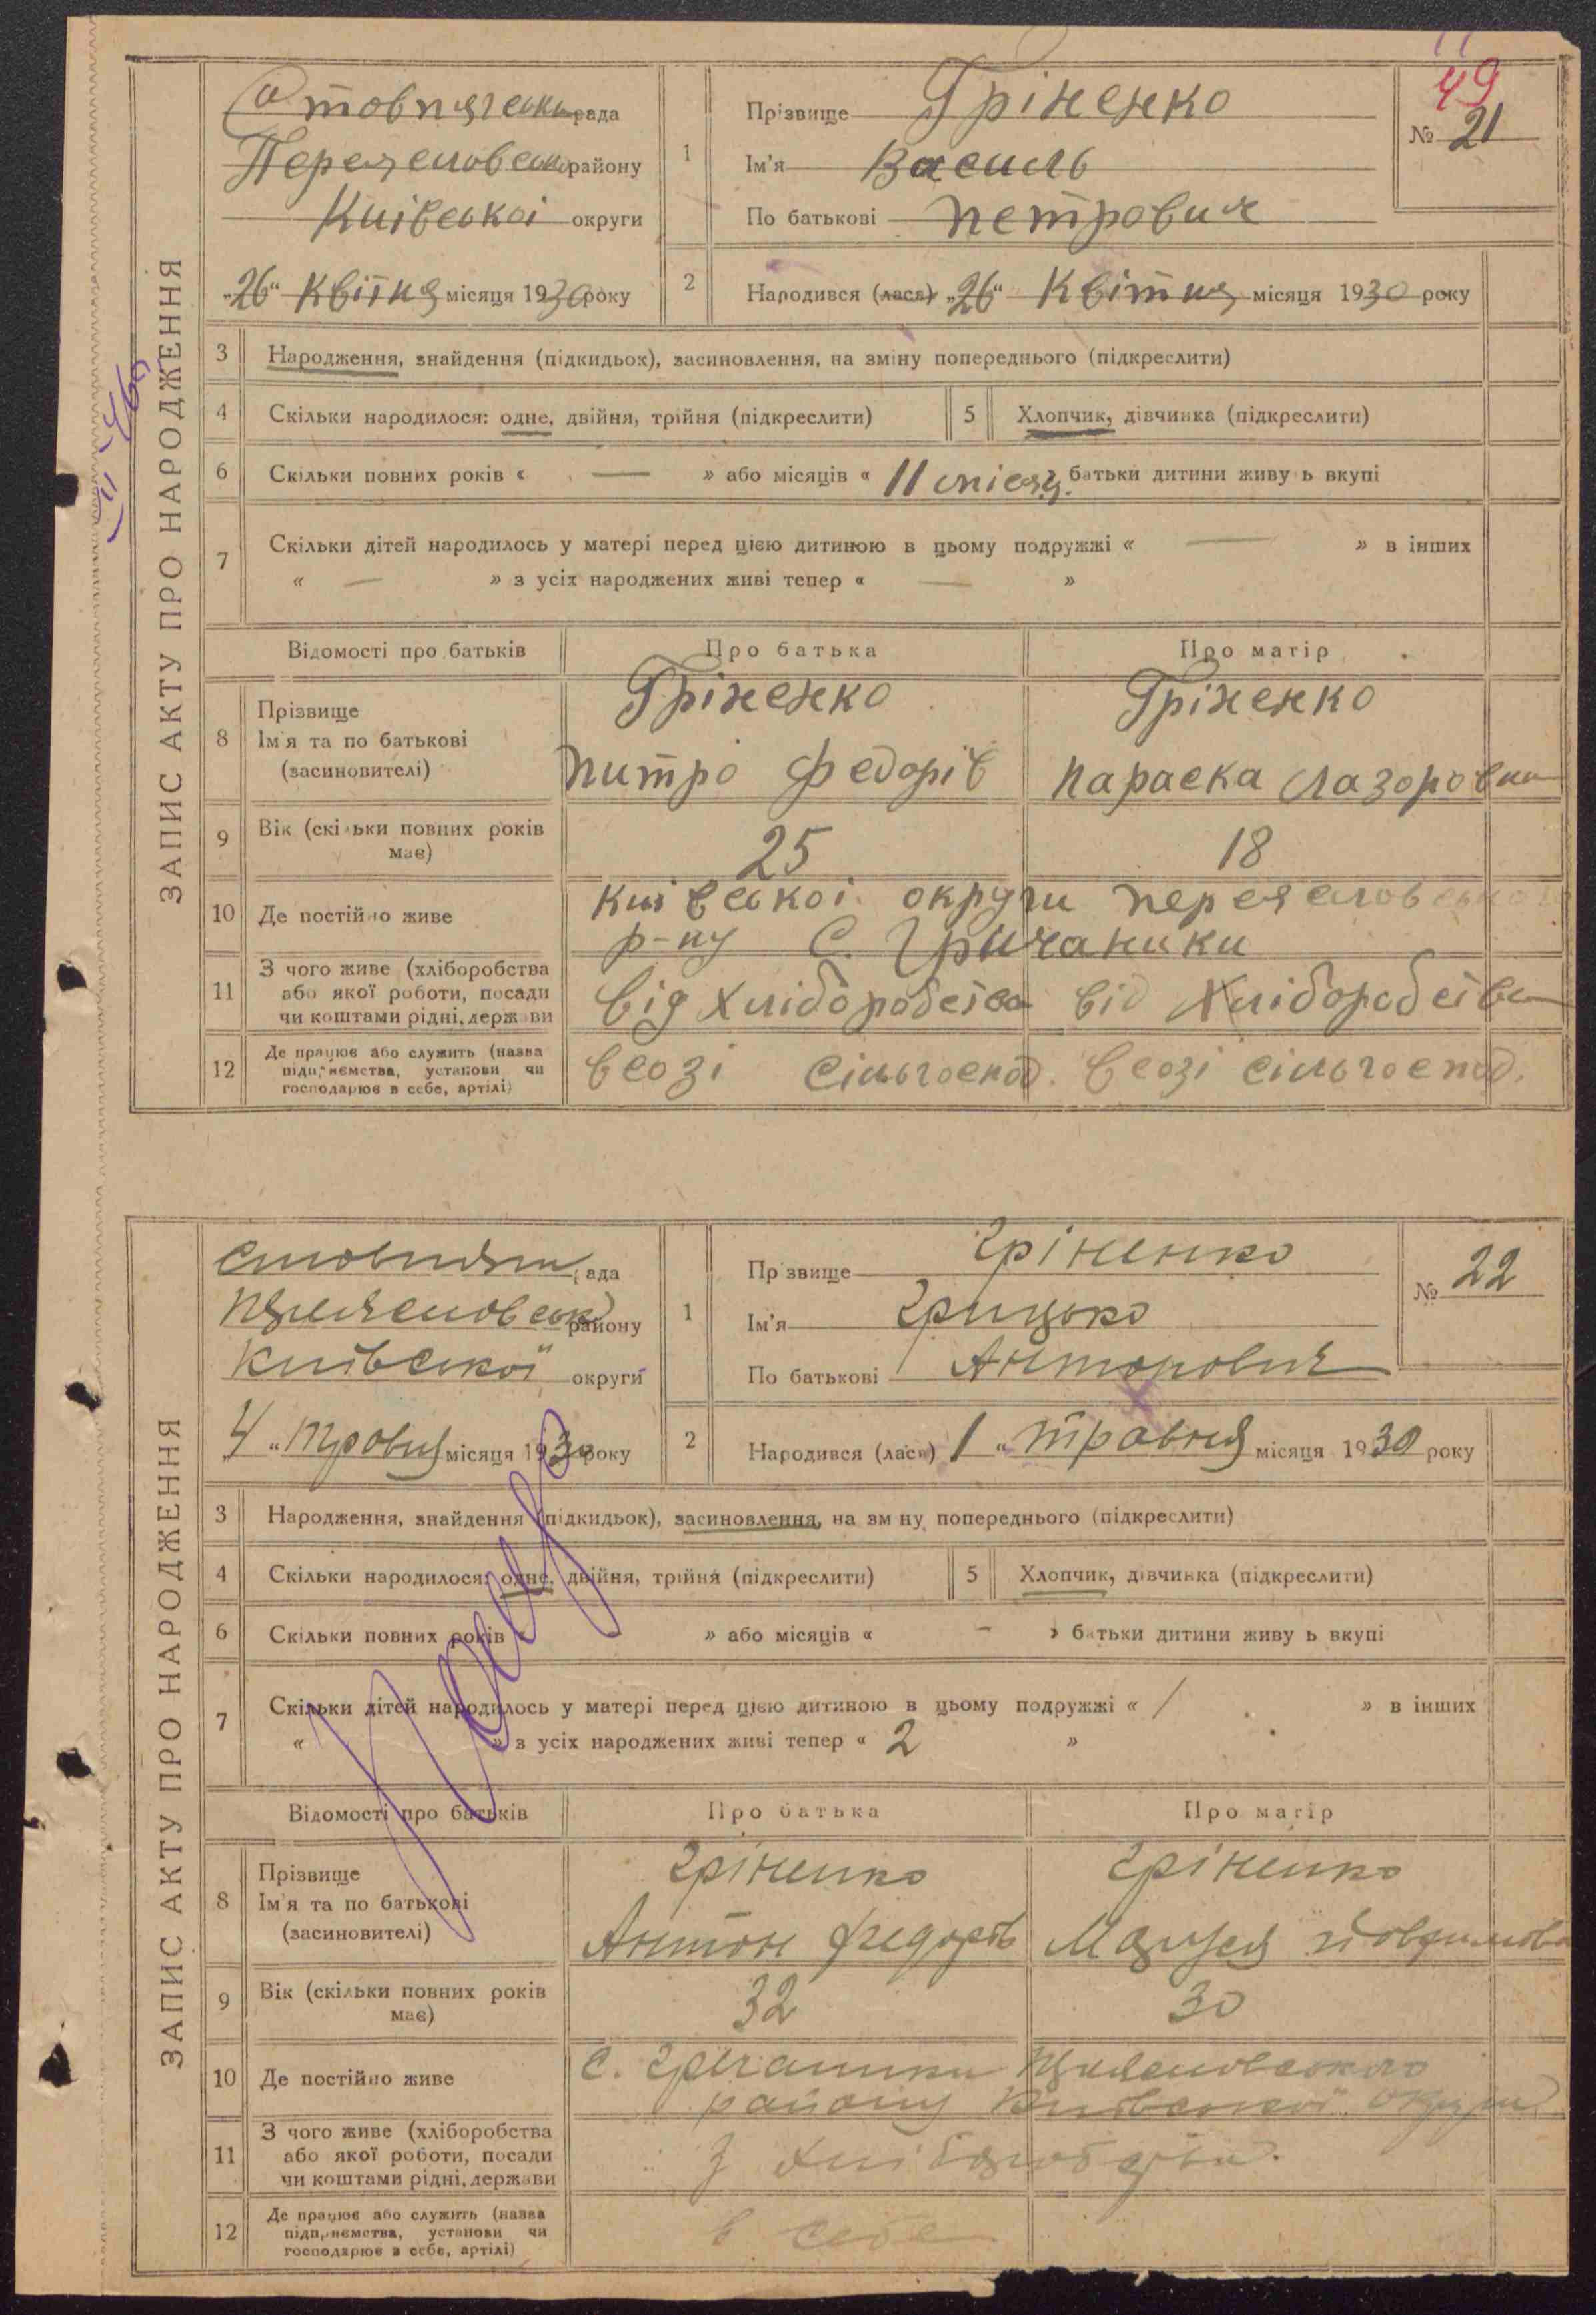 49
ЗАПИС АКТУ ПРО НАРОДЖЕННЯ
Стовпягська рада
Переясловськ району
Київськоі округи
„26“ Квітня місяця 1930 року
1
Прізвище Гріненко
Ім'я Василь
По батькові Петрович
№ 21
2
Народився (лася) „26“ Квітня місяця 1930 року
3 Народження, знайдення (підкидьок), засиновлення, на зміну попереднього (підкреслити)
4 Скільки народилося: одне, двійня, трійня (підкреслити)
5 Хлопчик, дівчинка (підкреслити)
6 Скільки повних років « — » або місяців « 11 місяц. батьки дитини живу ь вкупі
7 Скільки дітей народилось у матері перед цією дитиною в цьому подружжі « — » в інших
« — » з усіх народжених живі тепер « — »
Відомості про батьків Про батька Про матір
8 Прізвище
Ім'я та по батькові
(засиновителі)
Гріненко Гріненко
Питро Федорів Параска Лазоровна
9 Вік (скільки повних років
має)
25 18
10 Де постійно живе
Київськоі округи Переясловського
р-ну С. Гричаники
11 З чого живе (хліборобства
або якої роботи, посади
чи коштами рідні, держави
від Хліборобства від Хліборобства
12 Де працює або служить (назва
підприємства, установи чи
господарює в себе, артілі)
в созі Сільгоспод. в созі сільгоспод.
ЗАПИС АКТУ ПРО НАРОДЖЕННЯ
Стовпязьк рада
району
Київської округи
„4“ Тровня місяця 1930 року
1
Пр звище Гріненко
Ім'я Грицько
По батькові Антонович
№ 22
2
Народився (лася) 1 “ Травня місяця 1930 року
3 Народження, знайдення (підкидьок), засиновлення, на зм ну попереднього (підкреслити)
4 Скільки народилося: одне, двійня, трійня (підкреслити)
5 Хлопчик, дівчинка (підкреслити)
6 Скільки повних років « » або місяців « - » батьки дитини живу ь вкупі
7 Скільки дітей народилось у матері перед цією дитиною в цьому подружжі « 1 » в інших
« » з усіх народжених живі тепер « 2 »
Відомості про батьків Про батька Про матір
8 Прізвище
Ім'я та по батькові
(засиновителі)
Гріненко Гріненко
Антон Федорів
9 Вік (скільки повних років
має)
32 30
10 Де постійно живе
С. Гречаники
району Київської округи
11 З чого живе (хліборобства
або якої роботи, посади
чи коштами рідні, держави
З хліборобства.
12 Де працює або служить (назва
підприємства, установи чи
господарює в себе, артілі)
в себе